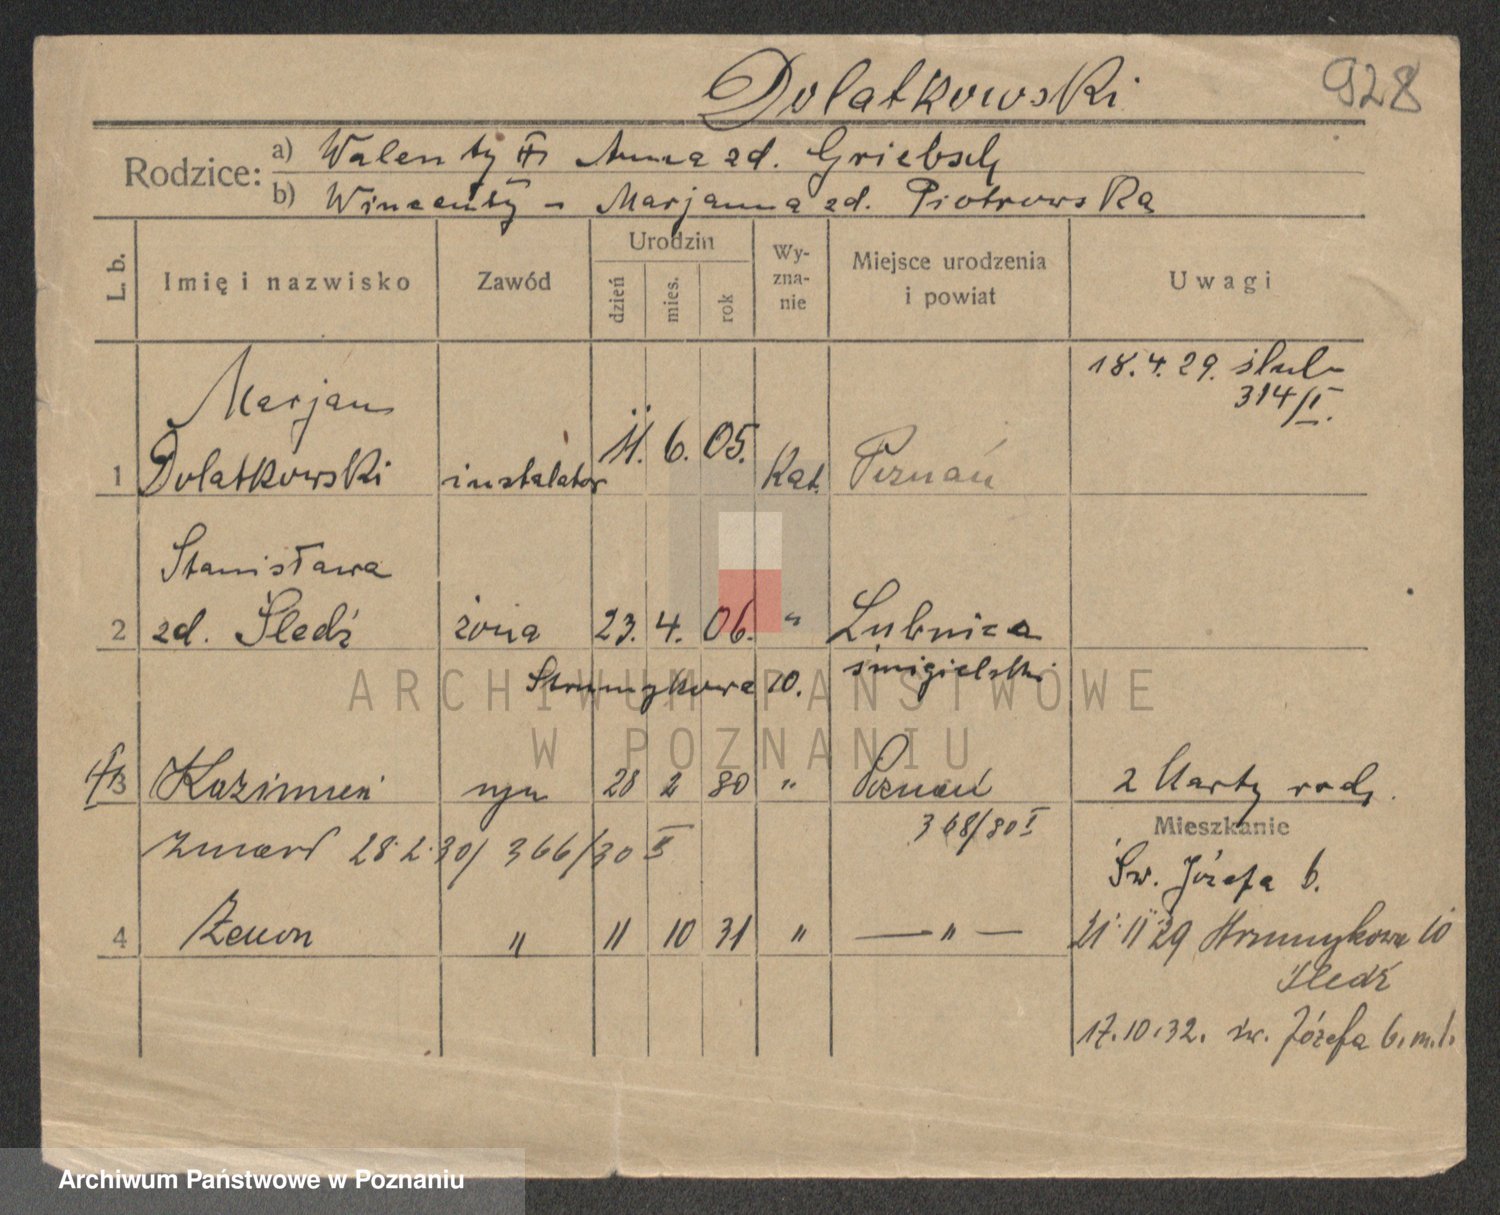 Dolatkowski
928
Rodzice:
a) Walenty Anna zd. Griebsch
b) Wincenty - Marjanna zd. Piotrowska
L. b.
Imię i nazwisko
Zawód
Urodzin
dzień
mies.
rok
Wy-
zna-
nie
Miejsce urodzenia
i powiat
Uwagi
18.4.29. ślub
314/I.
Marjan
1 Dolatkowski instalator 11. 6. 05. Kat. Poznań
Stanisława
2 zd. Śledź żona 23. 4. 06. " Lubnica
śmigielski
Strumykowa 10.
3 Kazimierz syn 28 2 30 " Poznań 2 Karty rodz.
368/30 I
Mieszkanie
zmarł 28.2.30/ 366/30 II
Św. Józefa 6.
4 Zenon " 11 10 31 " — " —
21.11.29 Strumykowa 10
Śledź
17.10.32. św. Józefa 6. m.1.
ARCHIWUM PAŃSTWOWE
W POZNANIU
Archiwum Państwowe w Poznaniu